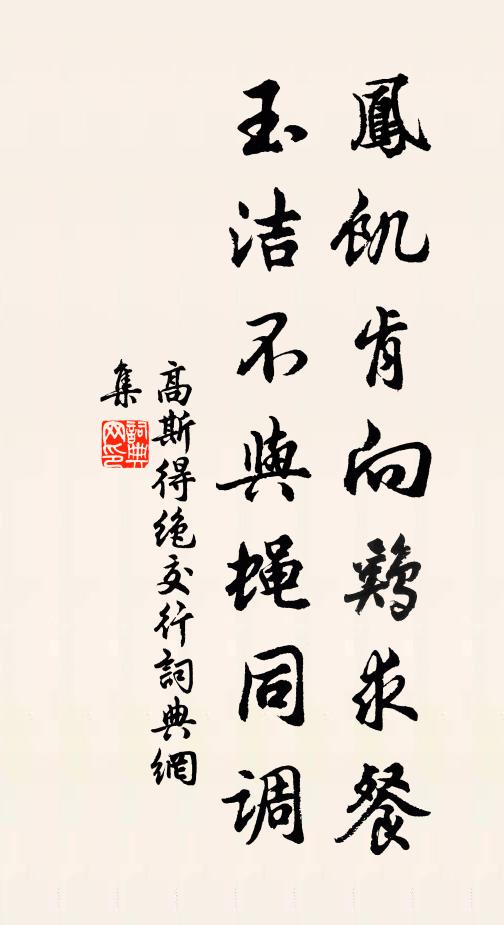 鳳飢肯向鷄求餐
玉洁不與蝇同調
高斯得絶交行詞典網
集
詞典
网印